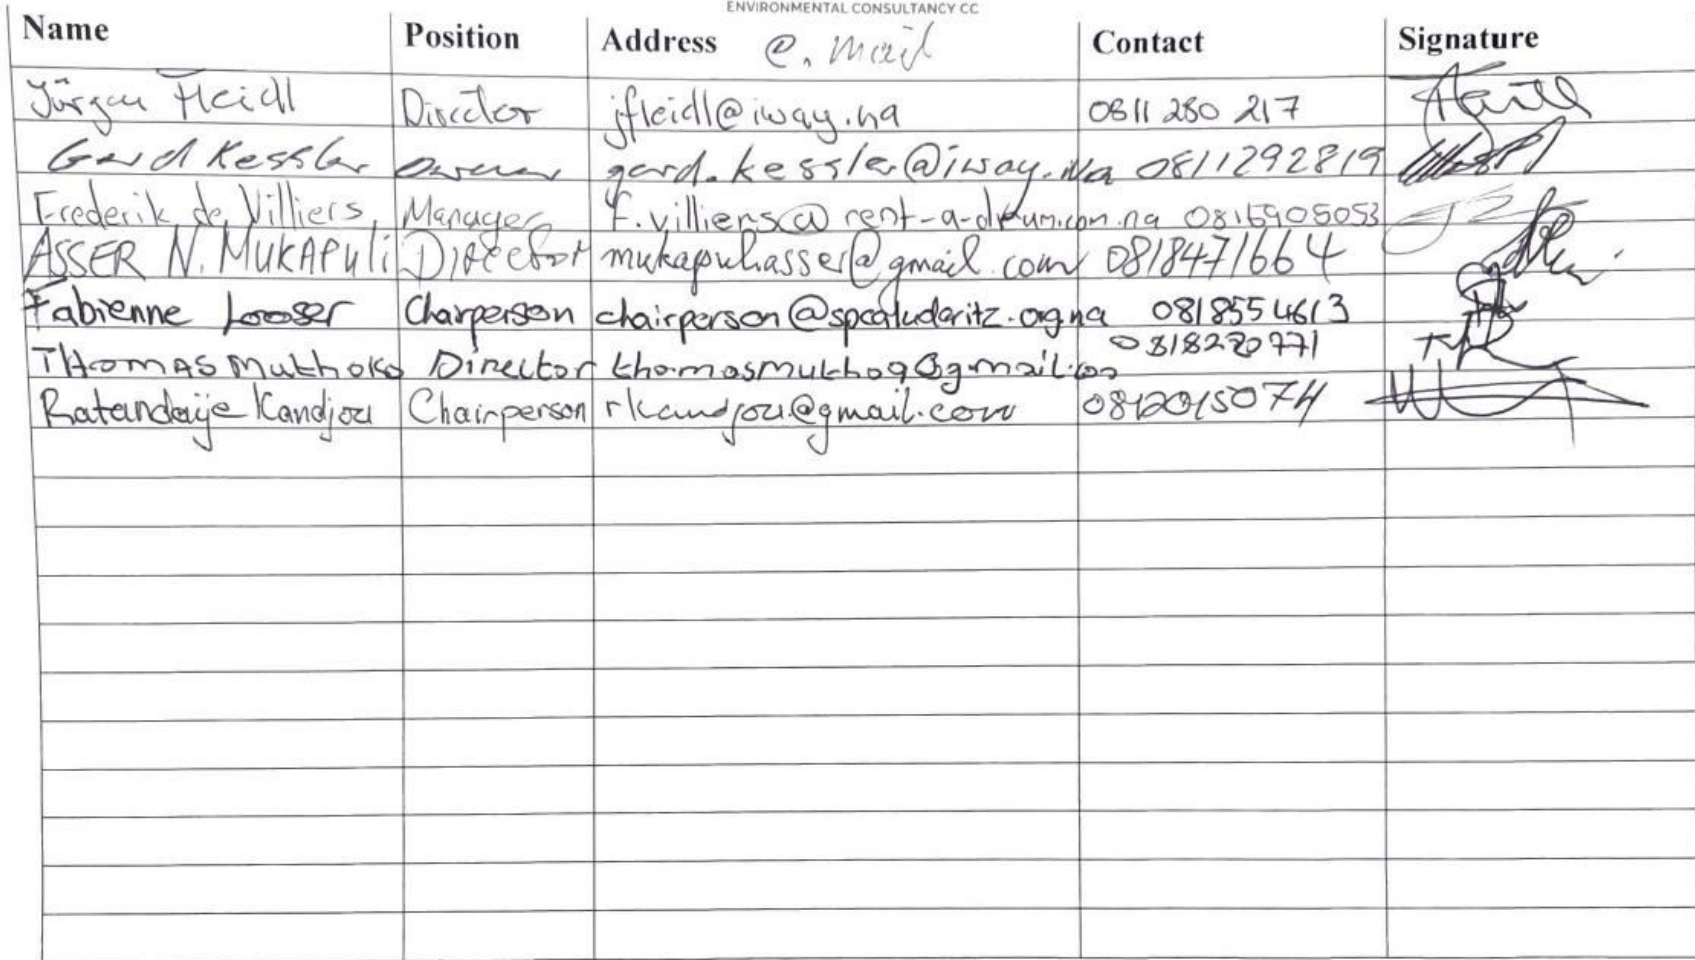 ENVIRONMENTAL CONSULTANCY CC
Name Position Address e.mail Contact Signature
Jürgen Fleidl Director jfleidl@iway.na 0811 280 217
Gerd Kessler owner gerd.kessler@iway.na 0811292819
Frederik de Villiers Manager f.villiers@rent-a-drum.com.na 0815905053
ASSER N. MUKAPULI Director mukapuliasser@gmail.com 0818471664
Fabienne Looser Chairperson chairperson@spcaluderitz.org.na 0818554613
THOMAS Mukhoko Director 0818220771
Ratandaije Kandjou Chairperson rkandjou@gmail.com 0812015074